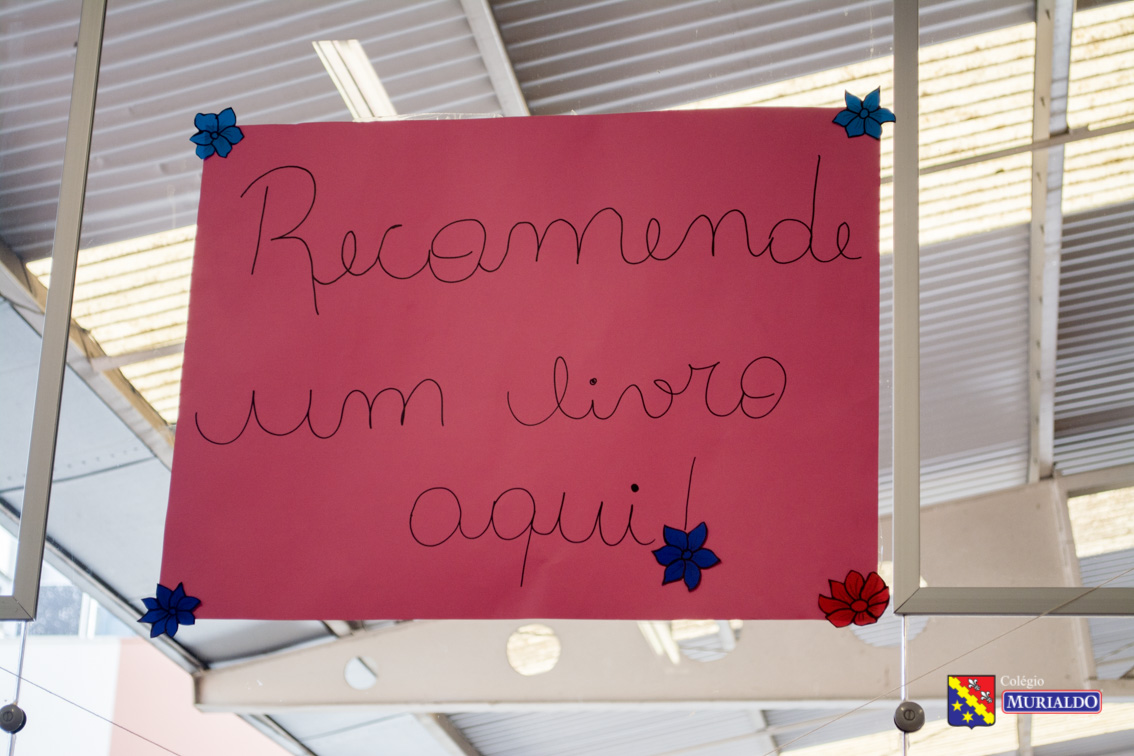 Recomende
um livro
aqui!
Colégio
MURIALDO